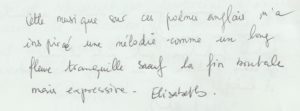 Cette musique sur ces poèmes anglais m'a
inspiré une mélodie comme un long
fleuve tranquille sauf la fin brutale
mais expressive. Elisabeth